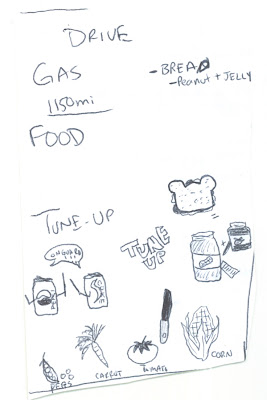 DRIVE
GAS
- BREAD
- Peanut + JELLY
1150mi
FOOD
TUNE-UP
ON GUARD
!!!
TUNE
UP
PEAS
CARROT
tomato
CORN